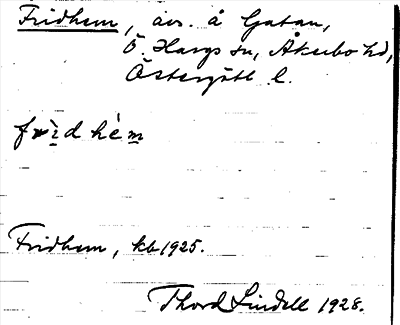 Fridhem, avs. å Gatan,
Ö. Hargs sn, Åkerbo hd,
Östergötl l.
frìdhèm
Fridhem, kb 1925.
Thord Lindell 1928.